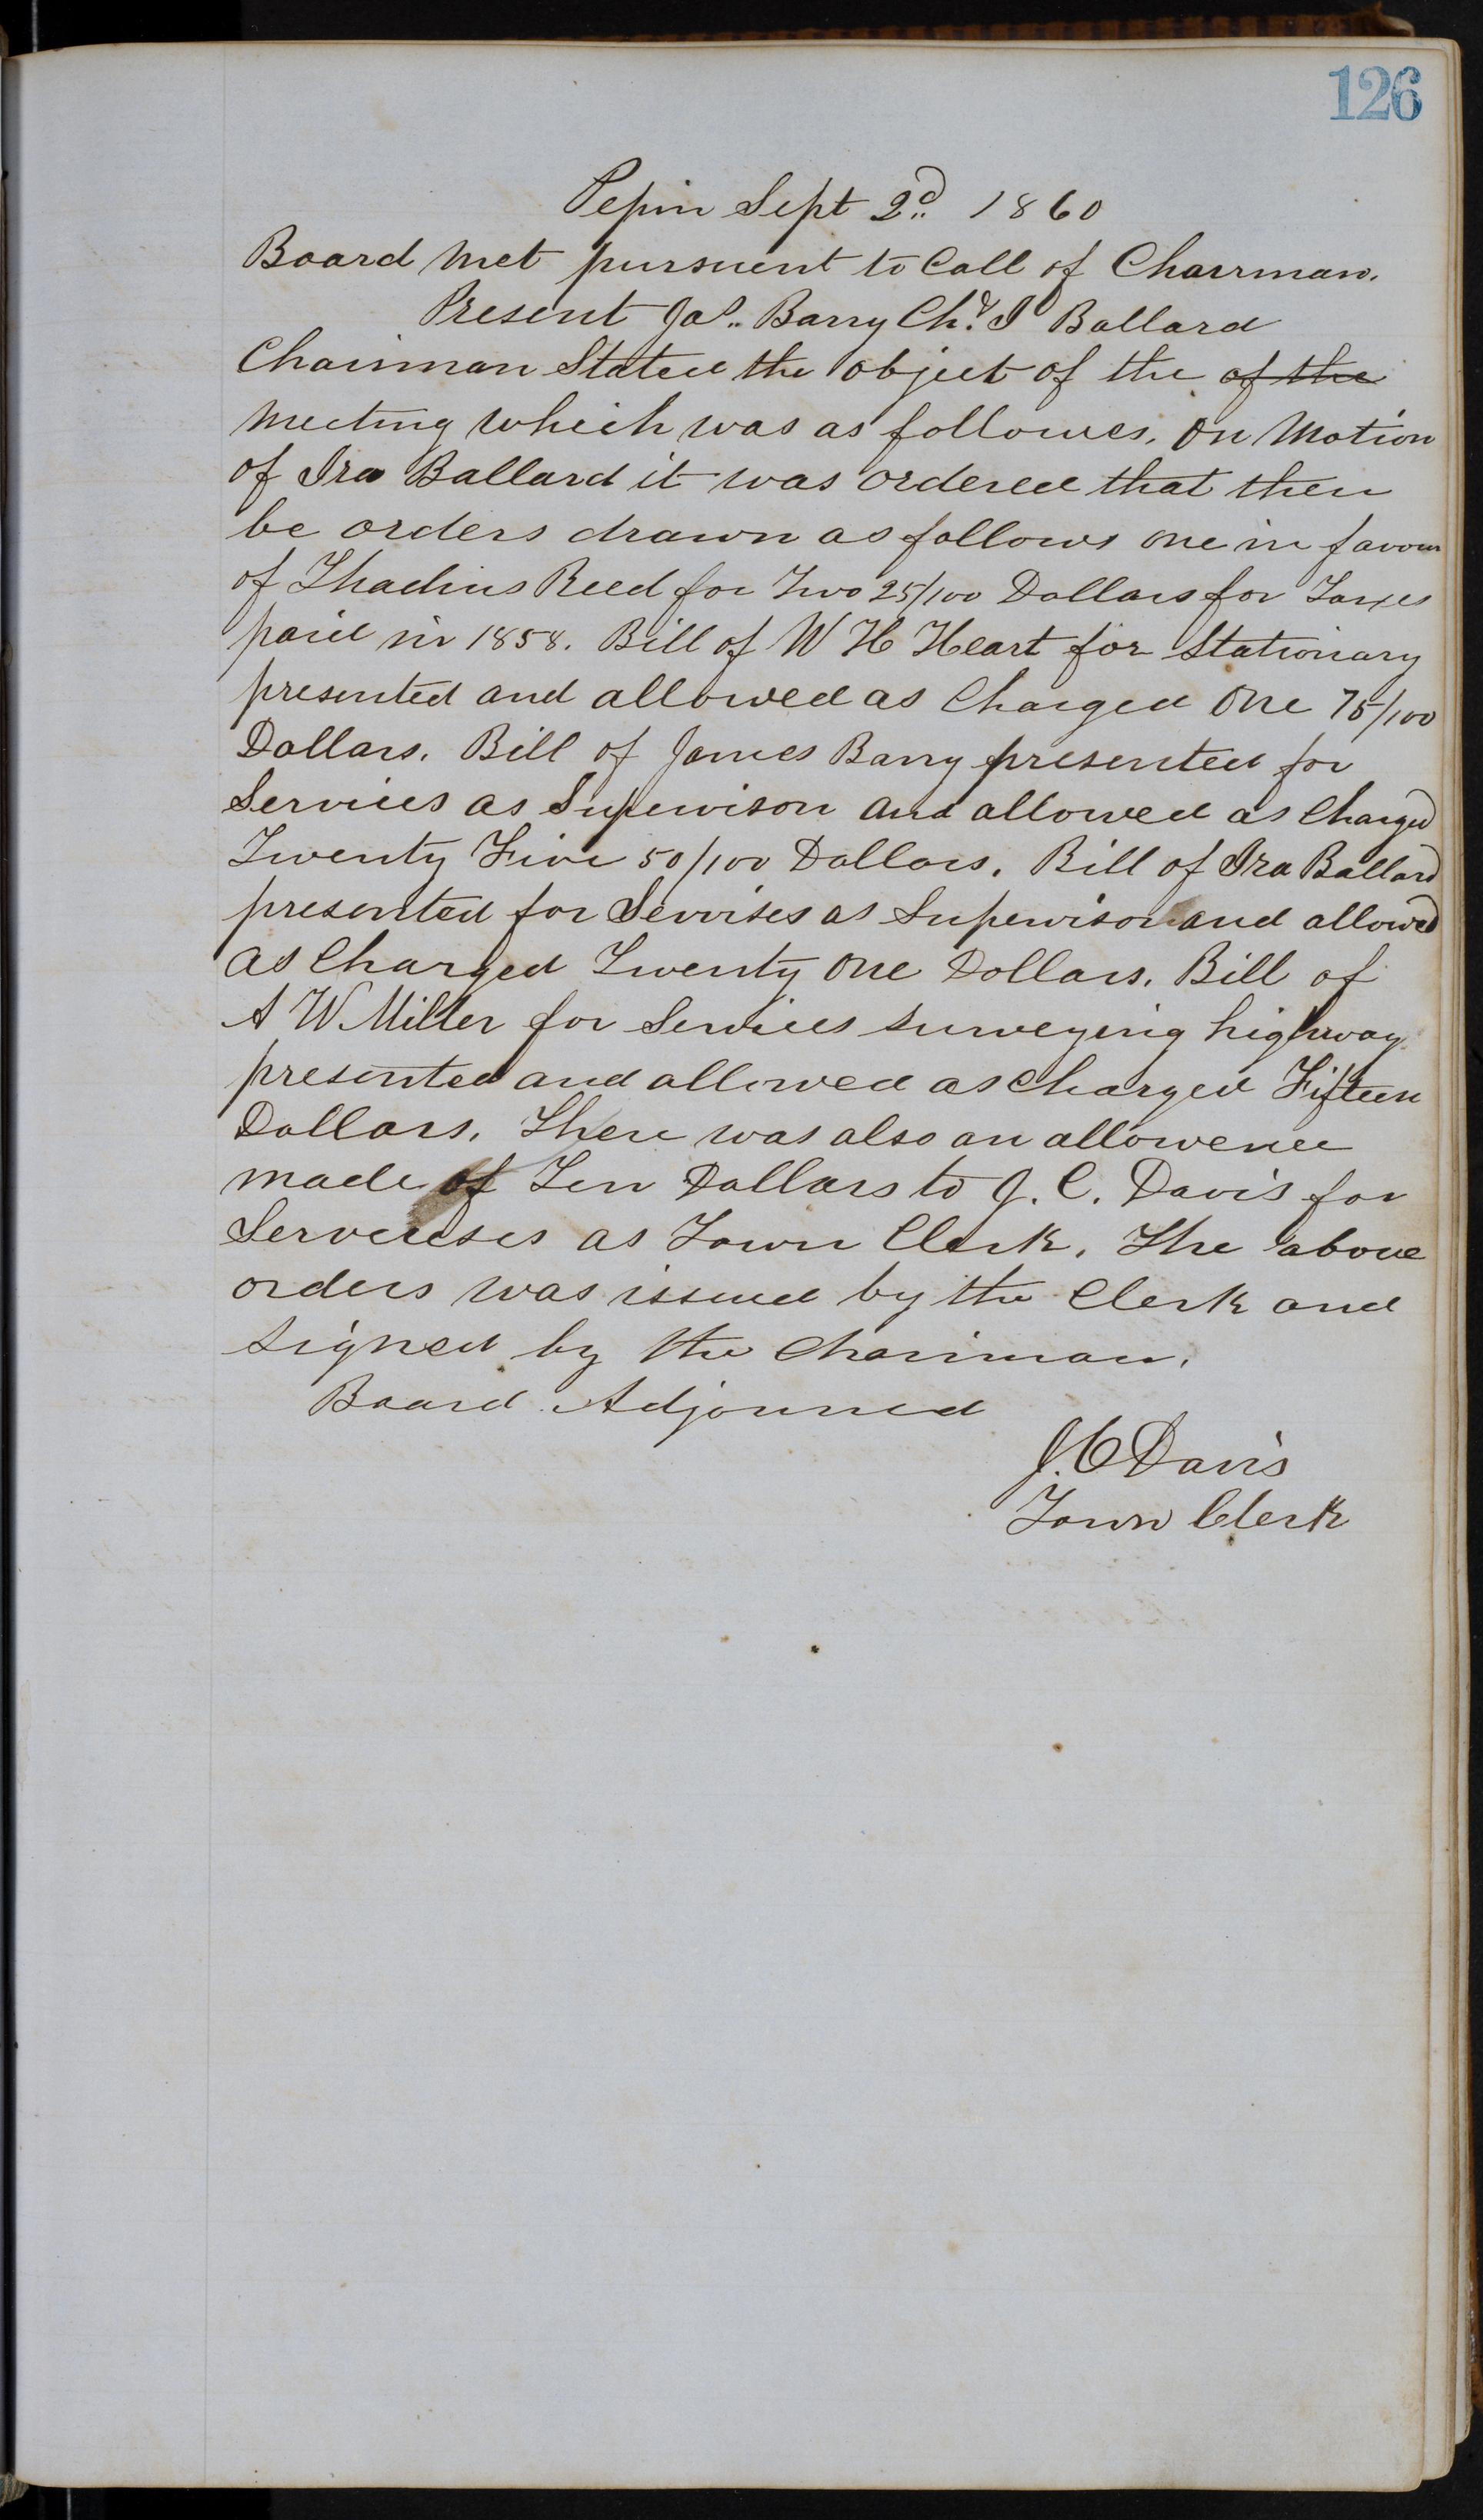 126
Pepin Sept 2d 1860
Board met pursuent to Call of Chairman.
Present Jas. Barry Ch. I Ballard
Chairman Stated the object of the of the
meeting which was as followes. On Motion
of Ira Ballard it was ordered that there
be orders drawn as follows one in favour
of Thadius Reed for Two 25/100 Dollars for Taxes
paid in 1858. Bill of W H Heart for Stationary
presented and allowed as Charged One 75/100
Dollars. Bill of James Barry presented for
Services as Supervison and allowed as Charged
Twenty Five 50/100 Dollars. Bill of Ira Ballard
presented for Servises as Supervison and allowed
as Charged Twenty One Dollars. Bill of
A W Miller for Services surveying highway
presented and allowed as Charged Fifteen
Dollars. There was also an allowence
made of Ten Dollars to J. C. Davis for
as Town Clerk. The above
orders was issued by the Clerk and
signed by the Chairman.
Board Adjourned
J. C Davis
Town Clerk